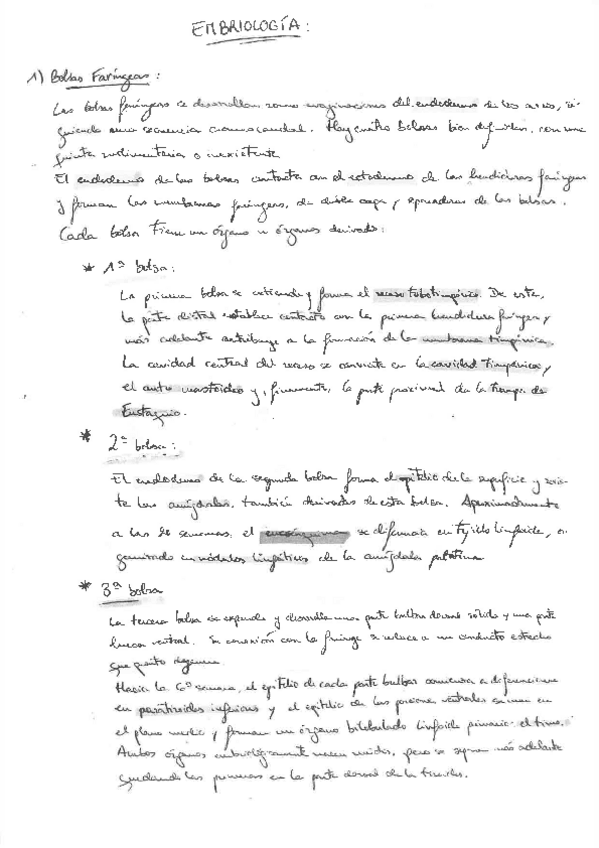 EMBRIOLOGÍA:
1) Bolsas Faríngeas:
Las bolsas faríngeas se desarrollan como evaginaciones del endodermo de los arcos, si-
guiendo una secuencia craneocaudal. Hay cuatro bolsas bien definidas, con una
quinta rudimentaria o inexistente
El endodermo de las bolsas contacta con el ectodermo de las hendiduras faríngeas
y forman las membranas faríngeas, de doble capa y separadoras de las bolsas.
Cada bolsa tiene un órgano u órganos derivado:
* 1ª bolsa:
La primera bolsa se extiende y forma el receso tubotimpánico. De este,
la parte distal establece contacto con la primera hendidura faríngea y
más adelante contribuye a la formación de la membrana timpánica.
La cavidad central del receso se convierte en la cavidad timpánica y
el antro mastoideo y, finalmente, la parte proximal da la trompa de
Eustaquio.
* 2ª bolsa:
El endodermo de la segunda bolsa forma el epitelio de la superficie y
te las amígdalas, también derivadas de esta bolsa. Aproximadamente
a las semanas, el mesénquima se diferencia en tejido linfoide, or-
ganizado en nódulos linfáticos de la amígdala palatina
* 3ª bolsa
La tercera bolsa se expande y desarrolla una parte bulbar dorsal sólida y una parte
hueca ventral. Su conexión con la faringe se reduce a un conducto estrecho
que pronto degenera.
Hacia la 6ª semana, el epitelio de cada parte bulbar comienza a diferenciarse
en paratiroides inferiores y el epitelio de las porciones ventrales se unen en
el plano medio y forman un órgano bilobulado linfoide primario: el timo.
Ambos órganos embriológicamente nacen unidos, pero se separan más adelante
quedando las primeras en la parte dorsal de la tiroides.